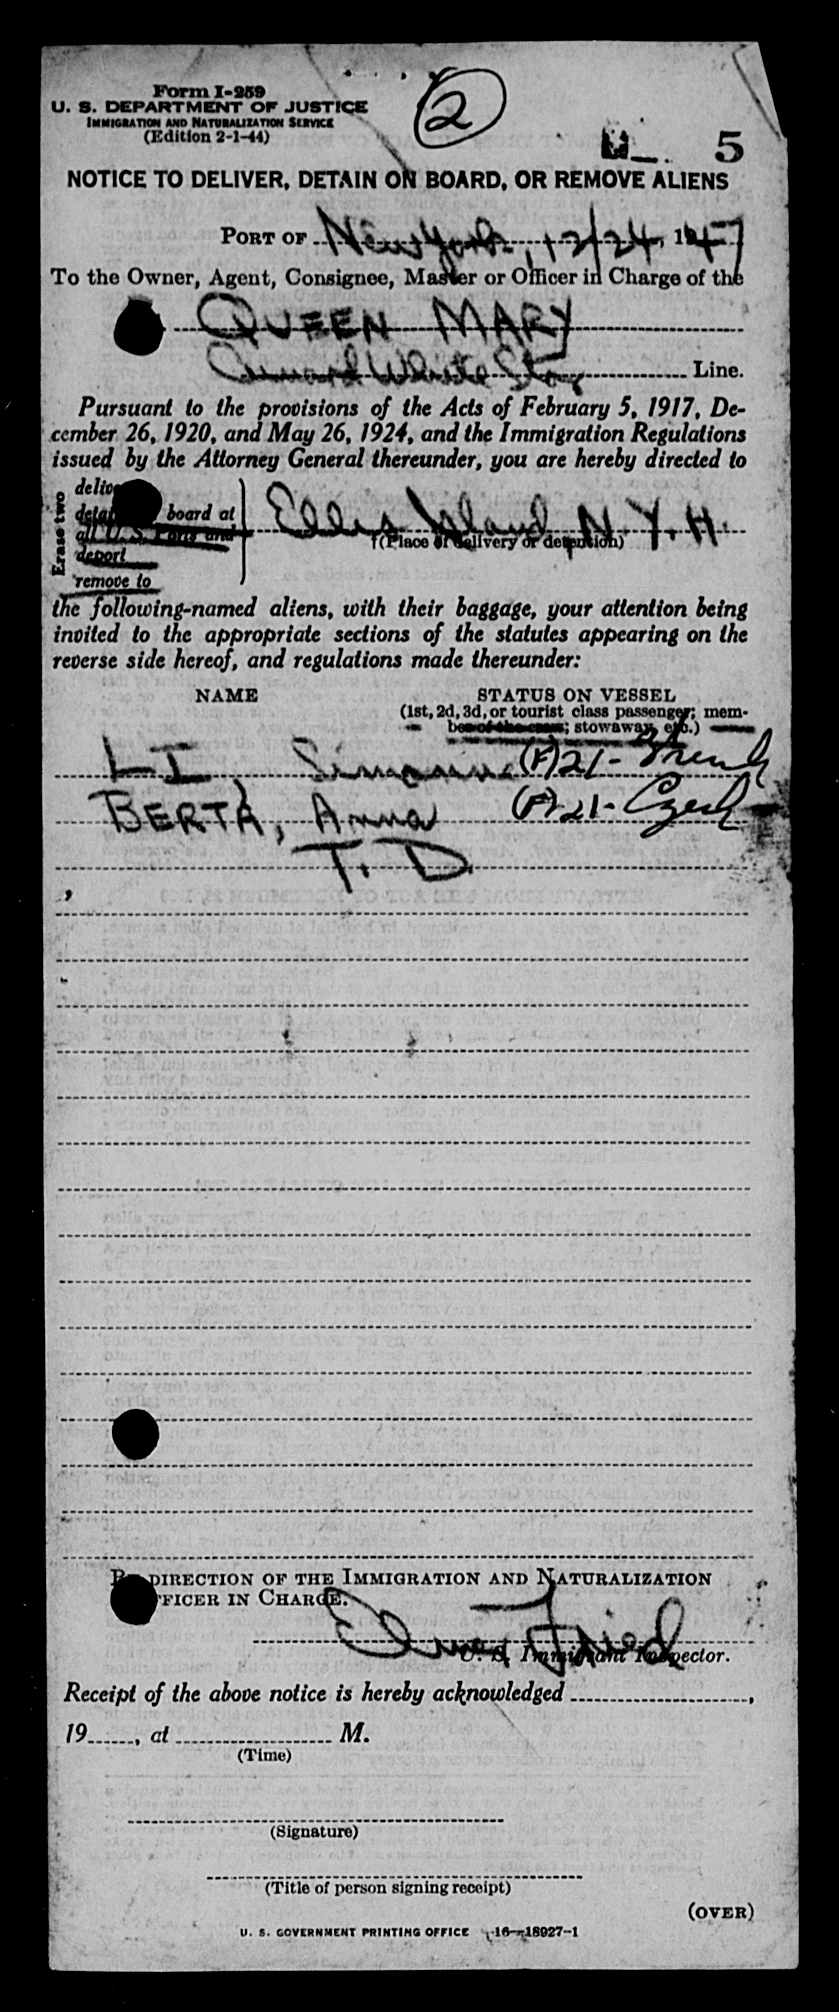 Form I-259
2
U. S. DEPARTMENT OF JUSTICE
IMMIGRATION AND NATURALIZATION SERVICE
(Edition 2-1-44)
5
NOTICE TO DELIVER, DETAIN ON BOARD, OR REMOVE ALIENS
PORT OF New York, 12/24, 1947
To the Owner, Agent, Consignee, Master or Officer in Charge of the
QUEEN MARY
Cunard White Star Line.
Pursuant to the provisions of the Acts of February 5, 1917, De-
cember 26, 1920, and May 26, 1924, and the Immigration Regulations
issued by the Attorney General thereunder, you are hereby directed to
Erase two
board at
all U. S. Ports and
deport
remove to
Ellis Island, N.Y.H.
(Place of delivery or detention)
the following-named aliens, with their baggage, your attention being
invited to the appropriate sections of the statutes appearing on the
reverse side hereof, and regulations made thereunder:
NAME STATUS ON VESSEL
(1st, 2d, 3d, or tourist class passenger; mem-
ber of the crew; stowaway, etc.)
LI, Simonne (F) 21 - French
BERTA, Anna (F) 21 - Czech
T. D.
BY DIRECTION OF THE IMMIGRATION AND NATURALIZATION
OFFICER IN CHARGE.
Fried
U. S. Immigrant Inspector.
Receipt of the above notice is hereby acknowledged ,
19 , at M.
(Time)
(Signature)
(Title of person signing receipt)
(OVER)
U. S. GOVERNMENT PRINTING OFFICE 16-18927-1